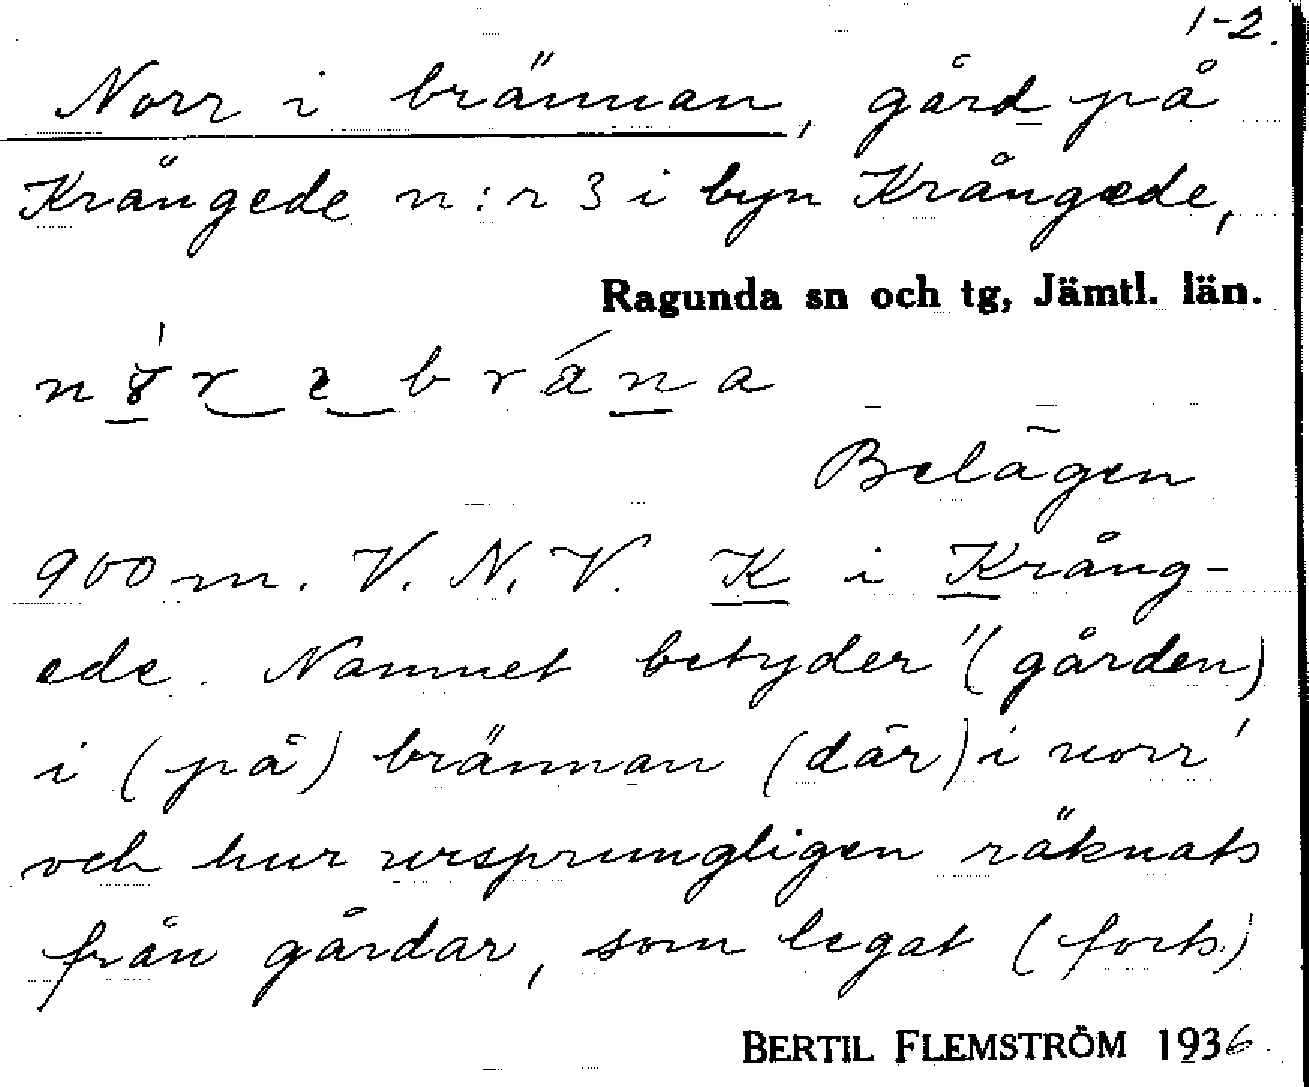 1-2.
Norr i brännan, gård på
Krångede n:r 3 i byn Krångede,
Ragunda sn och tg, Jämtl. län.
Belägen
900 m. V. N. V. K i Krång-
ede. Namnet betyder "(gården)
i (på) brännan (där) i norr'
och hur ursprungligen räknats
från gårdar, som legat (forts.)
BERTIL FLEMSTRÖM 1936.